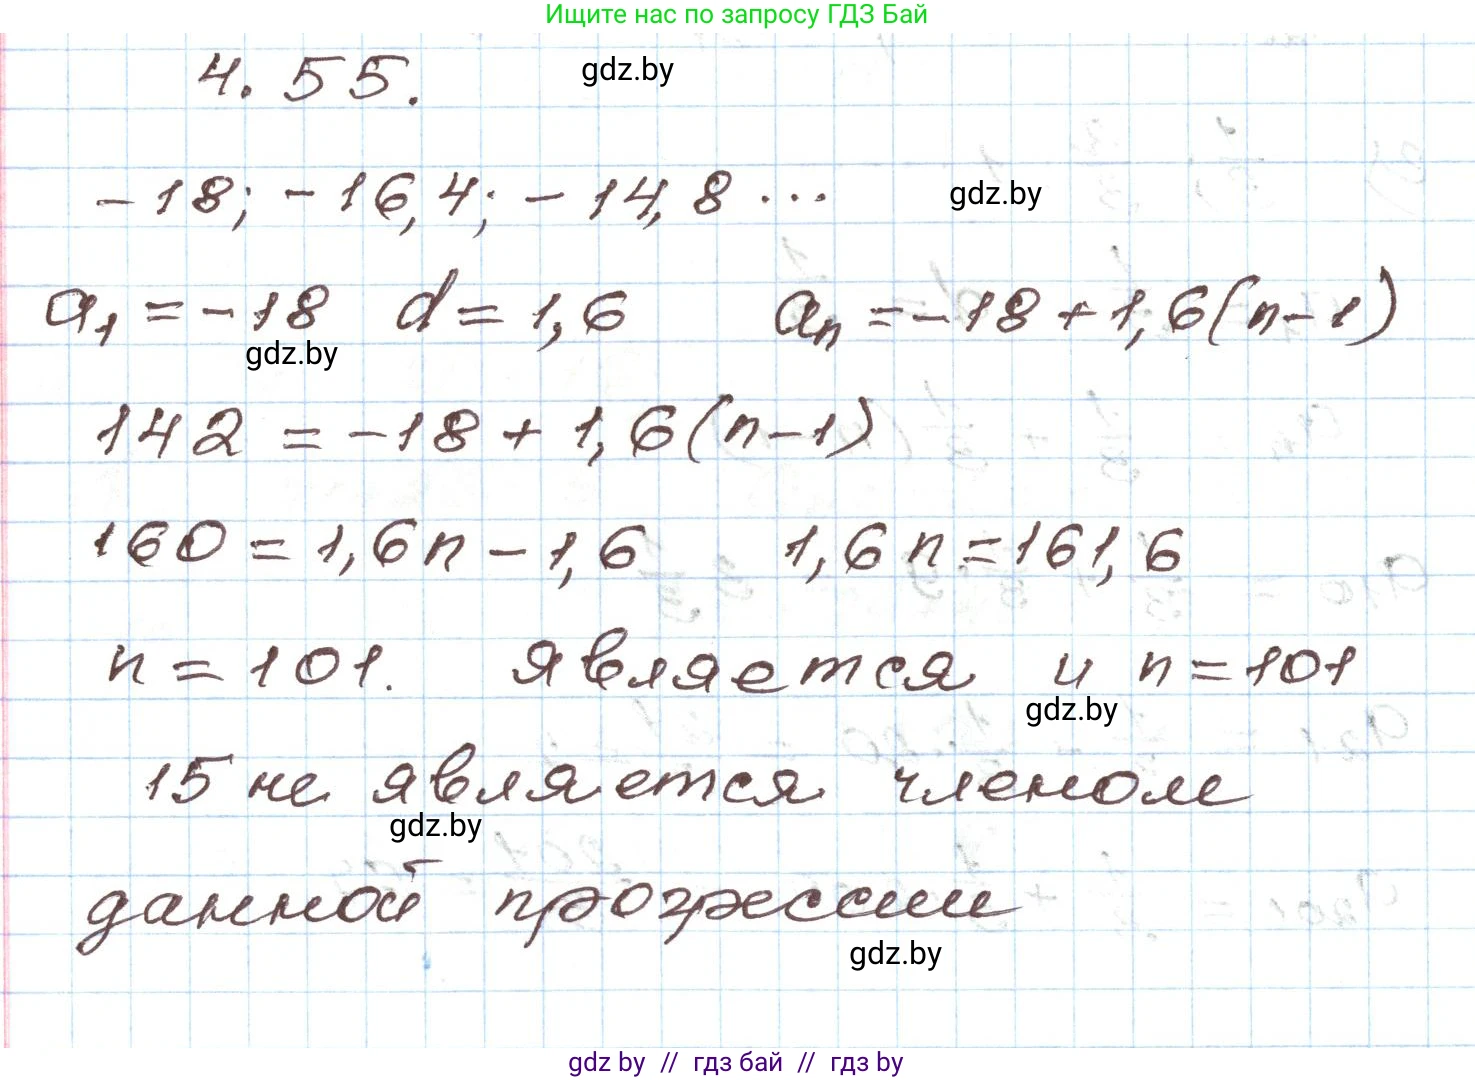 Ищите нас по запросу ГДЗ Бай
4.55.
gdz.by
-18; -16,4; -14,8 ...
gdz.by
a₁ = -18 d = 1,6 aₙ = -18 + 1,6(n-1)
gdz.by
142 = -18 + 1,6(n-1)
160 = 1,6n - 1,6 1,6n = 161,6
n = 101. является и n = 101
gdz.by
15 не является членом
gdz.by
данной прогрессии
gdz.by
gdz by // гдз бай // гдз by